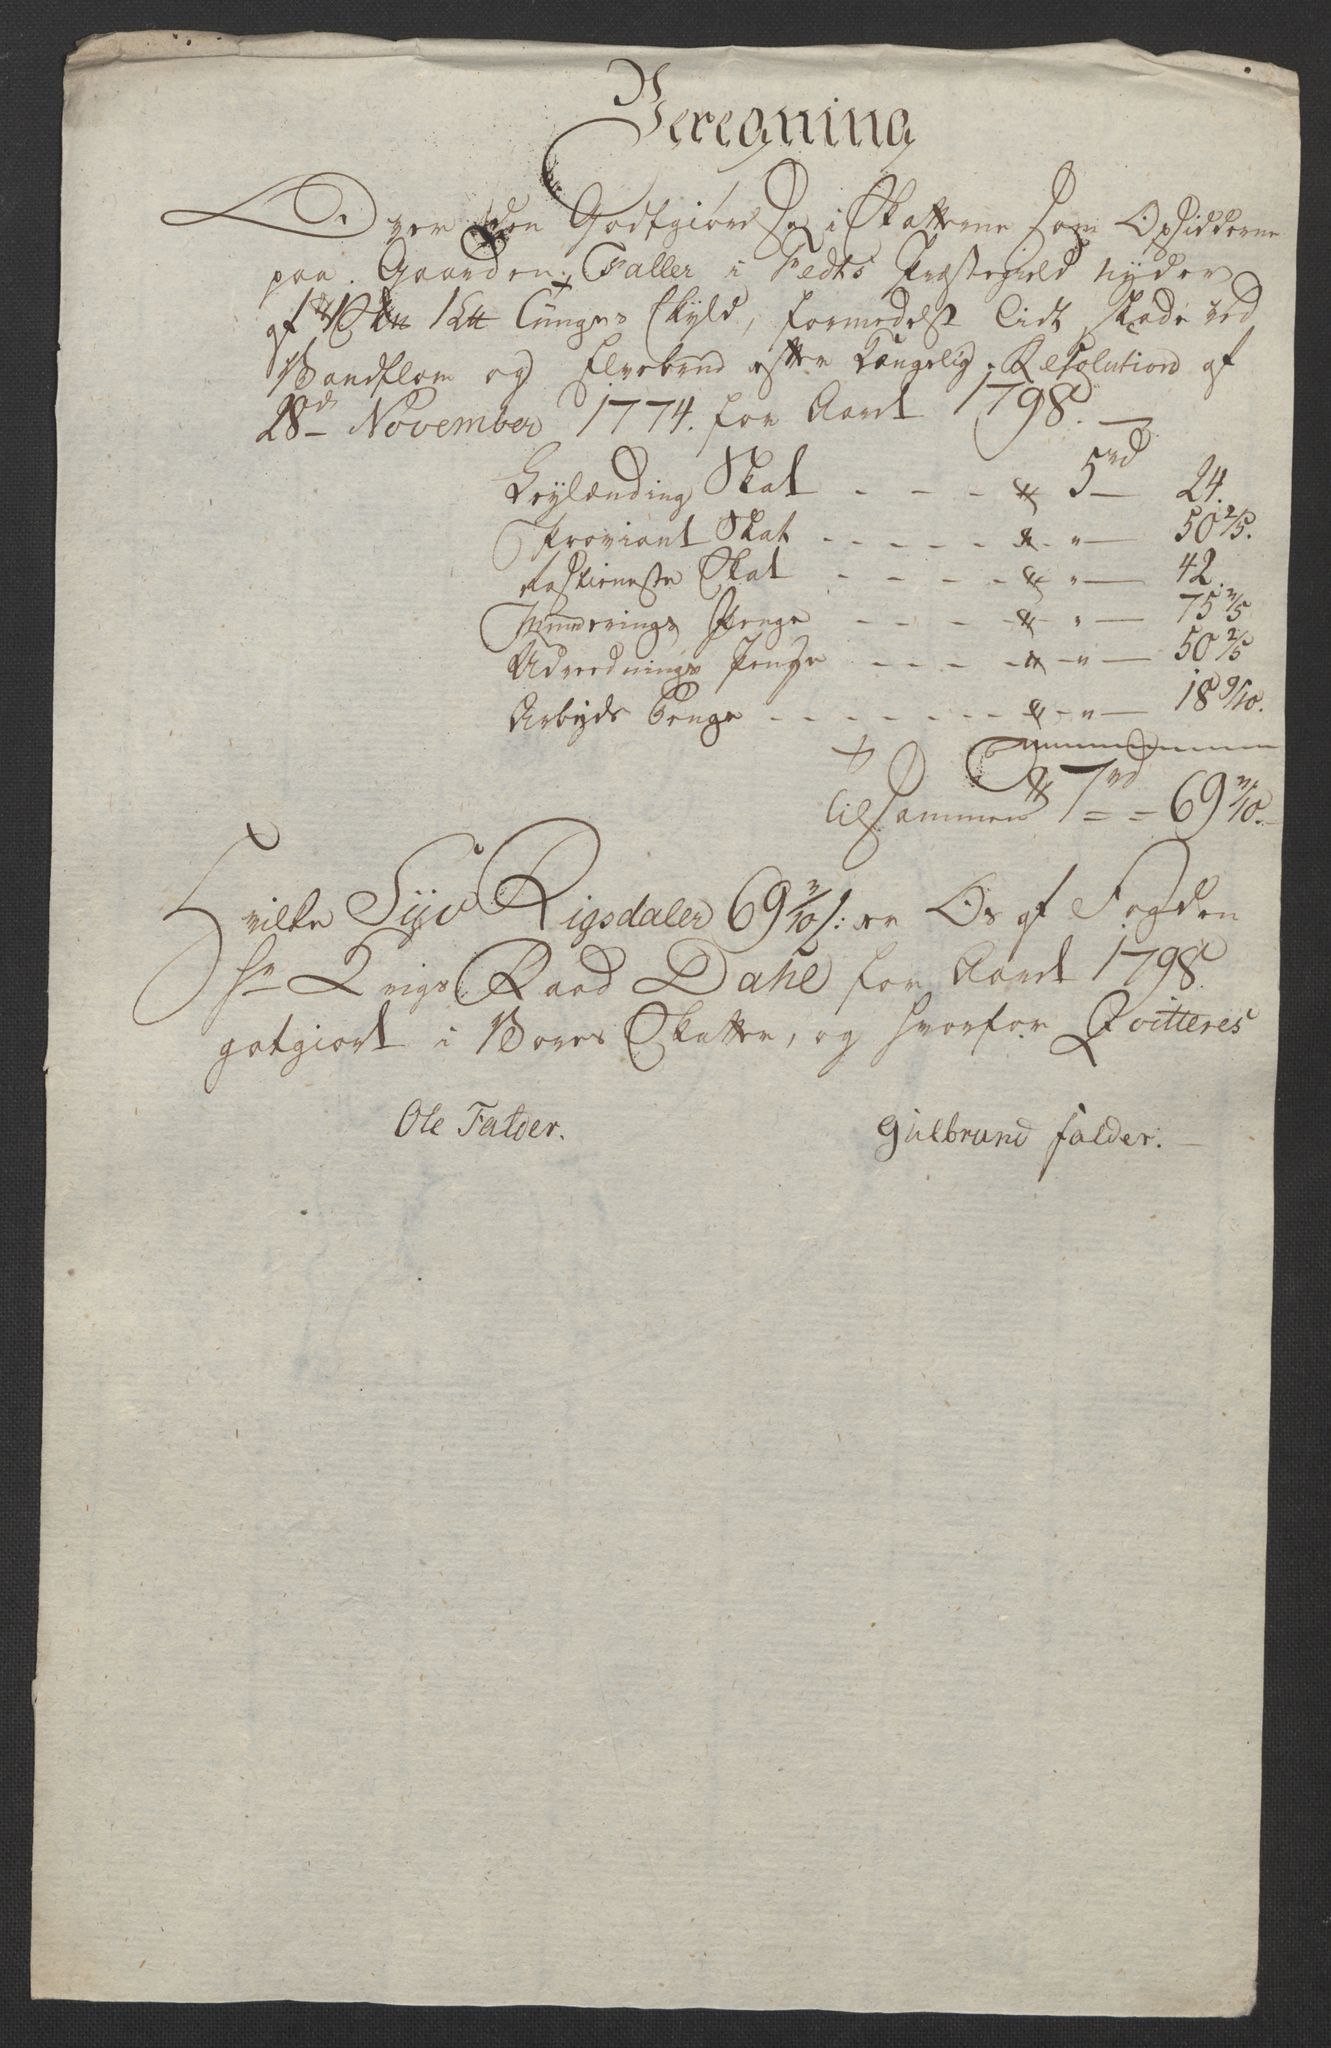 Beregning
Over den Godtgiørelse i Skatterne som Opsidderne
paa Gaarden Faller i Fedts Præstegield nyder
af 1 Sk℔ 1 L℔ Tunges Skyld, formedelst Lidt Skade ved
Vandflom og Elvebrud efter Kongelig Resolution af
28de November 1774. for Aaret 1798.
Leylænding Skat - - - 5rd 24.
Proviant Skat - - - - - " 50 2/5.
Rostieneste Skat - - - - " 42.
Munderings Penge - - - - " 75 3/5
Udreednings Penge - - - - " 50 2/5
Arbeyds Penge - - - - - - - " 18 9/10.
Tilsammen 7rd = = 69 3/10.
Hvilke Syv Rigsdaler 69 3/10 s: er Os af Fogden
Hr Krigs Raad Dahl for Aaret 1798
gotgiort i Vores Skatter, og hvorfor Qvitteres
Ole Falder.
Gulbrund falder.